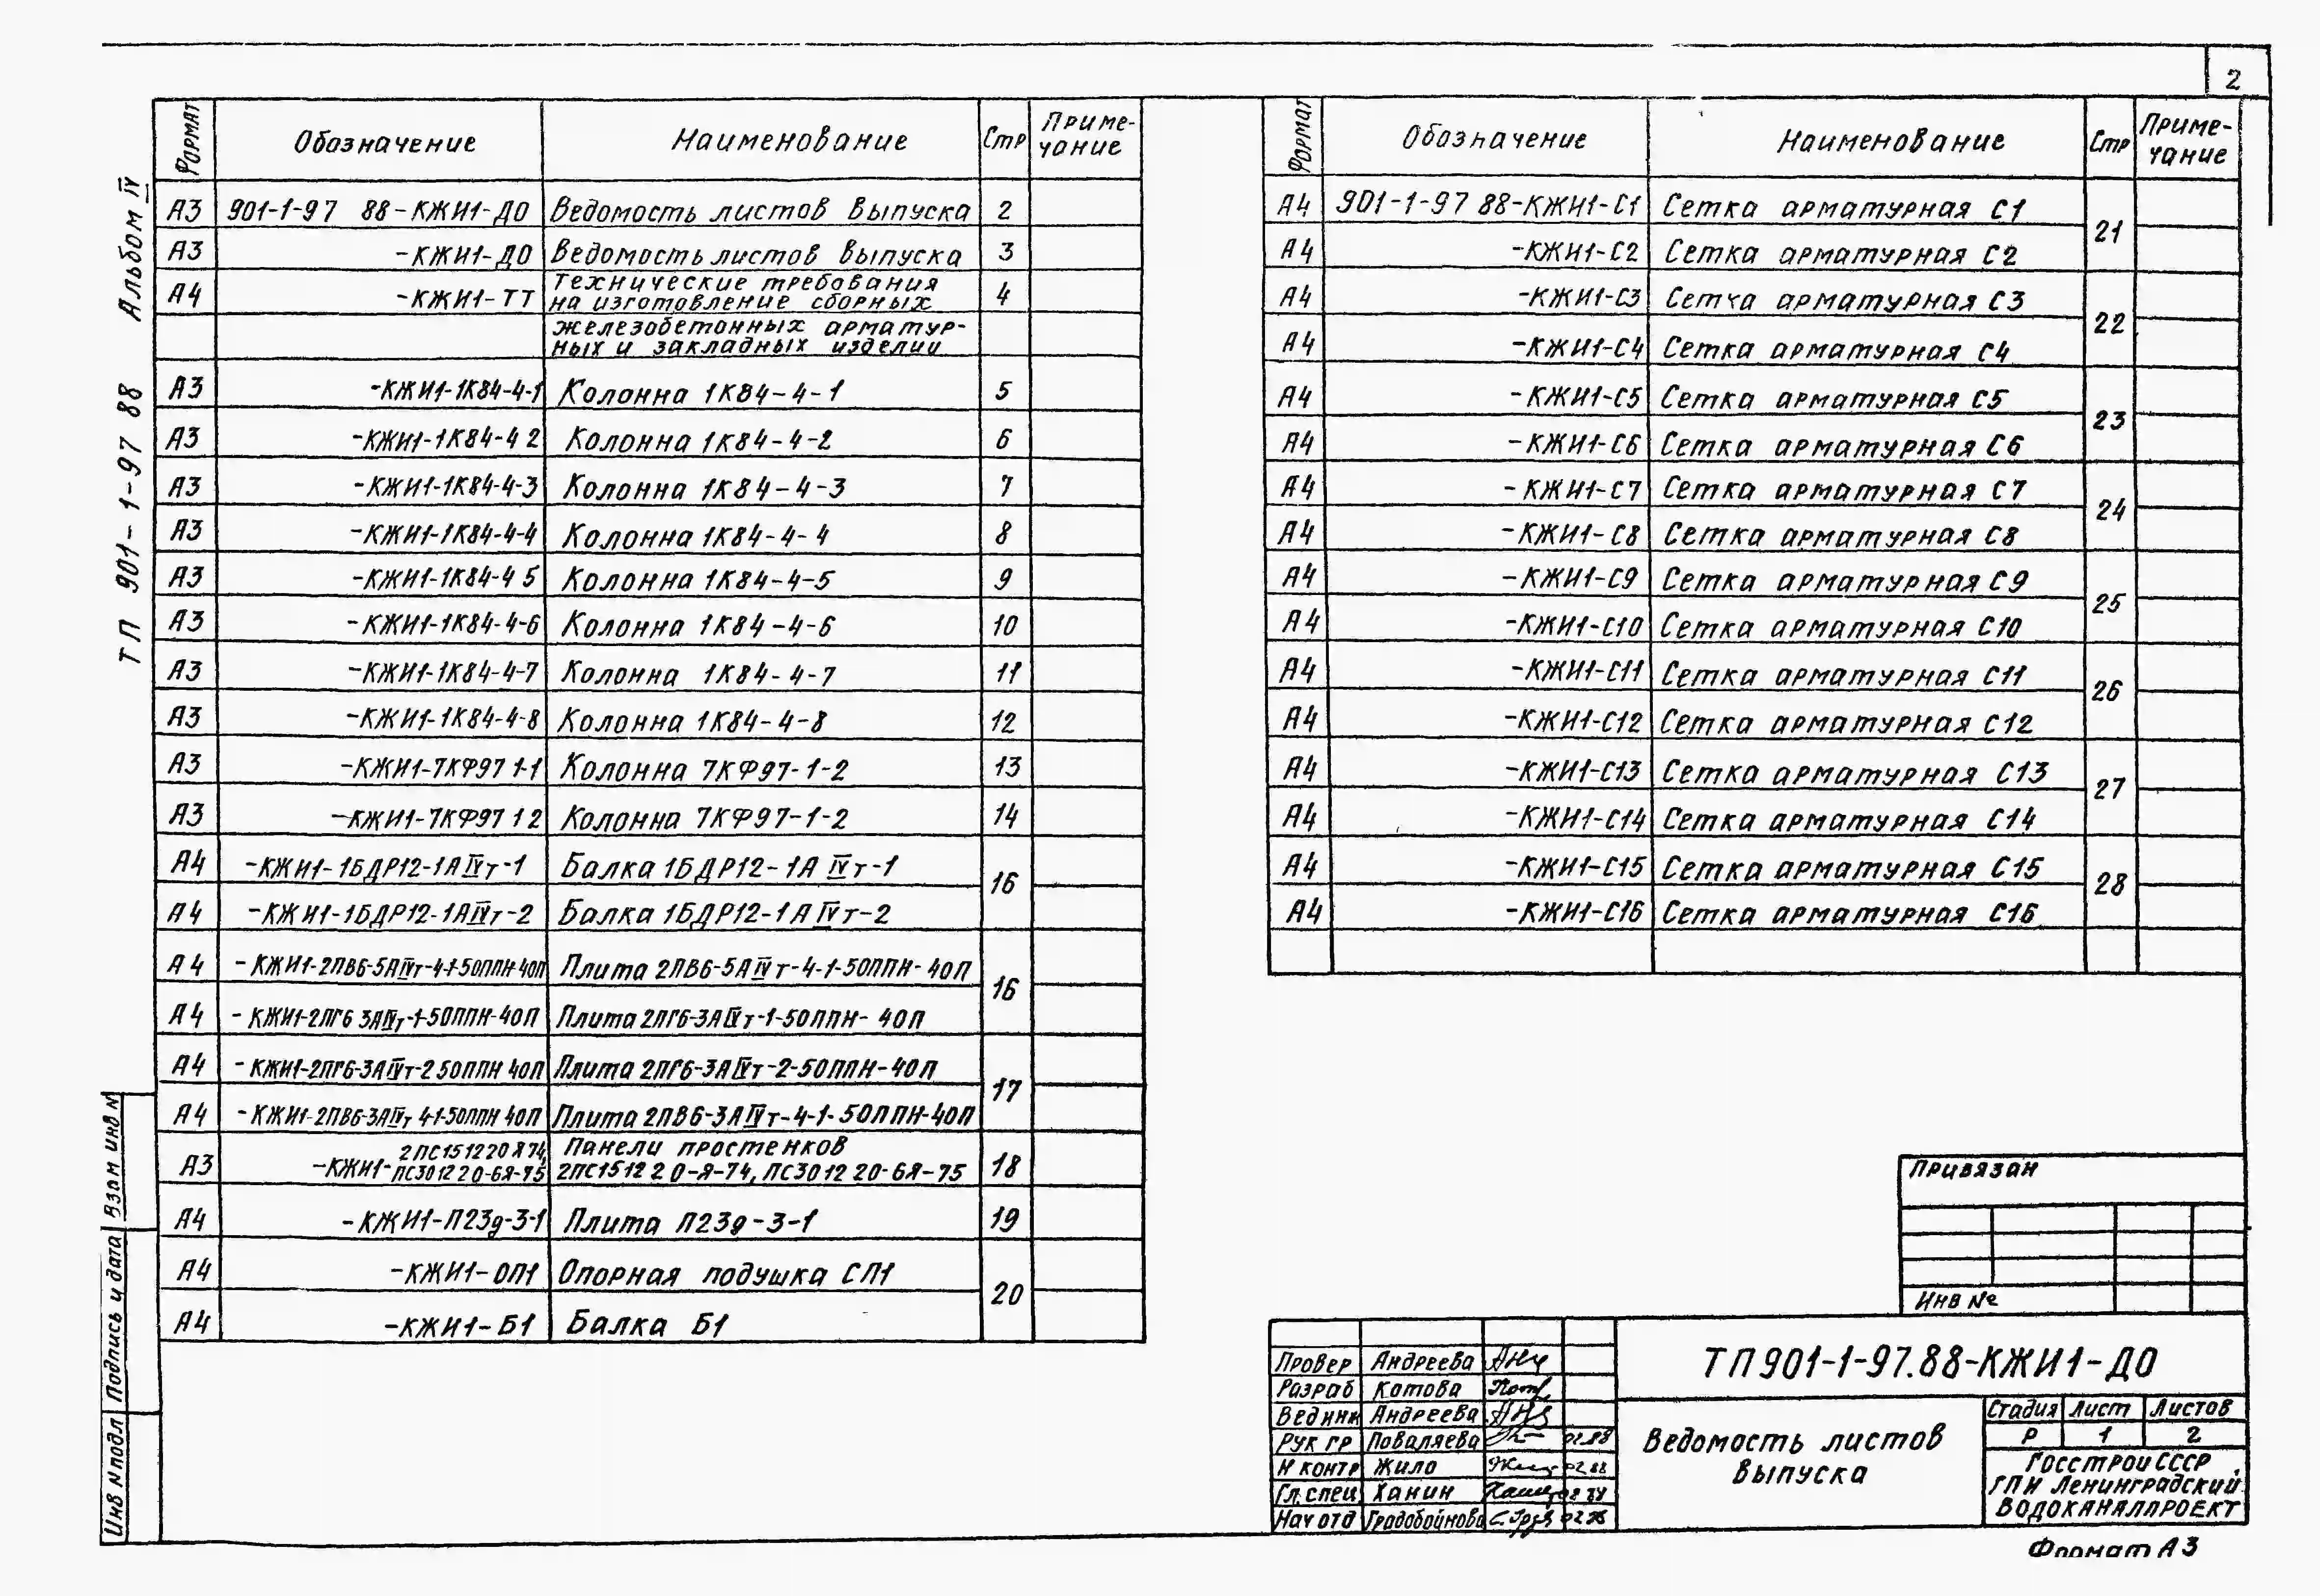 2
Альбом IV
ТП 901-1-97 88
Формат Обозначение Наименование Стр Приме-
чание
А3 901-1-97 88-КЖИ1-ДО Ведомость листов выпуска 2
А3 -КЖИ1-ДО Ведомость листов выпуска 3
А4 -КЖИ1-ТТ Технические требования
на изготовление сборных 4
железобетонных арматур-
ных и закладных изделии
А3 -КЖИ1-1К84-4-1 Колонна 1К84-4-1 5
А3 -КЖИ1-1К84-4 2 Колонна 1К84-4-2 6
А3 -КЖИ1-1К84-4-3 Колонна 1К84-4-3 7
А3 -КЖИ1-1К84-4-4 Колонна 1К84-4-4 8
А3 -КЖИ1-1К84-4 5 Колонна 1К84-4-5 9
А3 -КЖИ1-1К84-4-6 Колонна 1К84-4-6 10
А3 -КЖИ1-1К84-4-7 Колонна 1К84-4-7 11
А3 -КЖИ1-1К84-4-8 Колонна 1К84-4-8 12
А3 -КЖИ1-7КФ97 1-1 Колонна 7КФ97-1-2 13
А3 -КЖИ1-7КФ97 1 2 Колонна 7КФ97-1-2 14
А4 -КЖИ1-1БДР12-1АIVт-1 Балка 1БДР12-1АIVт-1 16
А4 -КЖИ1-1БДР12-1АIVт-2 Балка 1БДР12-1АIVт-2
А4 -КЖИ1-2ПВ6-5АIVт-4-1-50ППН-40П Плита 2ПВ6-5АIVт-4-1-50ППН-40П 16
А4 -КЖИ1-2ПГ6 3АIVт-1-50ППН-40П Плита 2ПГ6-3АIVт-1-50ППН-40П
А4 -КЖИ1-2ПГ6-3АIVт-2 50ППН 40П Плита 2ПГ6-3АIVт-2-50ППН-40П 17
А4 -КЖИ1-2ПВ6-3АIVт 4-1-50ППН 40П Плита 2ПВ6-3АIVт-4-1-50ППН-40П
А3 -КЖИ1- 2ПС151220Я74, Панели простенков
ПС3012 2 0-6Я-75 2ПС1512 2 0-Я-74, ПС3012 20-6Я-75 18
А4 -КЖИ1-П23д-3-1 Плита П23д-3-1 19
А4 -КЖИ1-ОП1 Опорная подушка СП1 20
А4 -КЖИ1-Б1 Балка Б1
Формат Обозначение Наименование Стр Приме-
чание
А4 901-1-97 88-КЖИ1-С1 Сетка арматурная С1 21
А4 -КЖИ1-С2 Сетка арматурная С2
А4 -КЖИ1-С3 Сетка арматурная С3 22
А4 -КЖИ1-С4 Сетка арматурная С4
А4 -КЖИ1-С5 Сетка арматурная С5 23
А4 -КЖИ1-С6 Сетка арматурная С6
А4 -КЖИ1-С7 Сетка арматурная С7 24
А4 -КЖИ1-С8 Сетка арматурная С8
А4 -КЖИ1-С9 Сетка арматурная С9 25
А4 -КЖИ1-С10 Сетка арматурная С10
А4 -КЖИ1-С11 Сетка арматурная С11 26
А4 -КЖИ1-С12 Сетка арматурная С12
А4 -КЖИ1-С13 Сетка арматурная С13 27
А4 -КЖИ1-С14 Сетка арматурная С14
А4 -КЖИ1-С15 Сетка арматурная С15 28
А4 -КЖИ1-С16 Сетка арматурная С16
Привязан
Инв №
Провер Андреева
Разраб Котова
Вед инж Андреева
Рук гр Поваляева 02.88
Н контр Жило 02 88
Гл. спец Ханин
Нач отд Градобойнова
ТП901-1-97.88-КЖИ1-ДО
Ведомость листов
выпуска
Стадия Лист Листов
Р 1 2
Госстрой СССР
ГПИ Ленинградский
Водоканалпроект
Формат А3
Взам инв N
Подпись и дата
Инв N подл